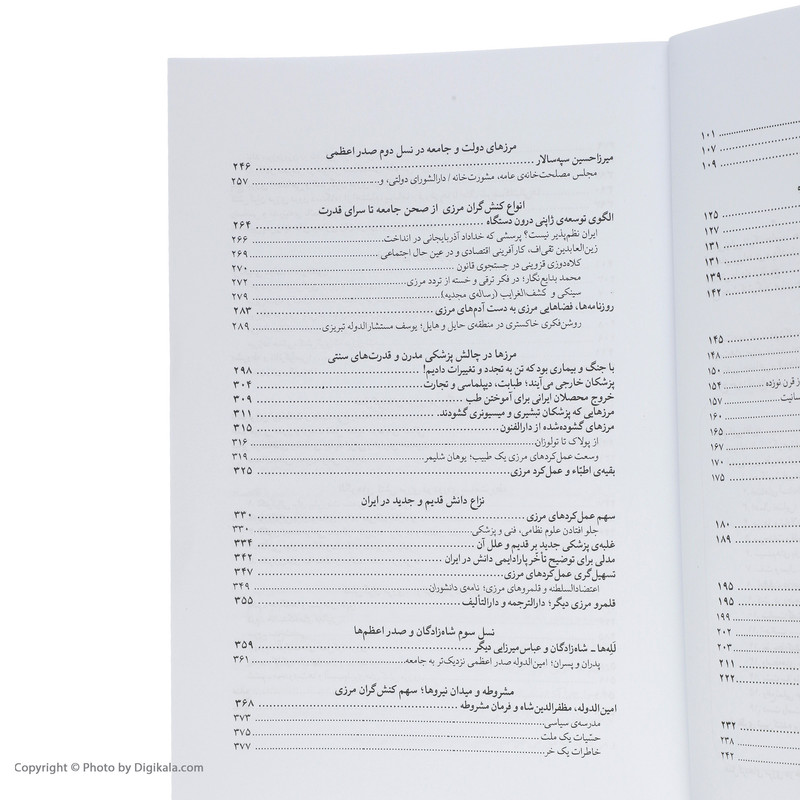 مرزهای دولت و جامعه در نسل دوم صدر اعظمی
میرزاحسین سپه‌سالار ۲۴۶
مجلس مصلحت‌خانه‌ی عامه، مشورت‌خانه / دارالشورای دولتی، و... ۲۵۷
انواع کنش‌گران مرزی از صحن جامعه تا سرای قدرت
الگوی توسعه‌ی ژاپنی درون دستگاه ۲۶۴
ایران نظم‌پذیر نیست؟ پرسشی که خداداد آذربایجانی در انداخت ۲۶۶
زین‌العابدین تقی‌اف، کارآفرینی اقتصادی و در عین حال اجتماعی ۲۶۹
کلاه‌دوزی قزوینی در جستجوی قانون ۲۷۰
محمد بدایع‌نگار؛ در فکر ترقی و خسته از تردد مرزی ۲۷۲
سینکی و کشف‌الغرایب (رساله‌ی مجدیه) ۲۷۹
روزنامه‌ها، فضاهایی مرزی به دست آدم‌های مرزی ۲۸۳
روشن‌فکری خاکستری در منطقه‌ی حایل و هایل؛ یوسف مستشارالدوله تبریزی ۲۸۹
مرزها در چالش پزشکی مدرن و قدرت‌های سنتی
با جنگ و بیماری بود که تن به تجدد و تغییرات دادیم! ۲۹۸
پزشکان خارجی می‌آیند؛ طبابت، دیپلماسی و تجارت ۳۰۴
خروج محصلان ایرانی برای آموختن طب ۳۰۹
مرزهایی که پزشکان تبشیری و میسیونری گشودند. ۳۱۱
مرزهای گشوده‌شده از دارالفنون ۳۱۵
از پولاک تا تولوزان ۳۱۶
وسعت عمل‌کردهای مرزی یک طبیب؛ یوهان شلیمر ۳۱۹
بقیه‌ی اطباء و عمل‌کرد مرزی ۳۲۵
نزاع دانش قدیم و جدید در ایران
سهم عمل‌کردهای مرزی ۳۳۰
جلو افتادن علوم نظامی، فنی و پزشکی ۳۳۰
غلبه‌ی پزشکی جدید بر قدیم و علل آن ۳۳۴
مدلی برای توضیح تأخّر پارادایمی دانش در ایران ۳۴۲
تسهیل‌گری عمل‌کردهای مرزی ۳۴۷
اعتضادالسلطنه و قلمروهای مرزی؛ نامه‌ی دانشوران ۳۴۹
قلمرو مرزی دیگر؛ دارالترجمه و دارالتألیف ۳۵۵
نسل سوم شاه‌زادگان و صدر اعظم‌ها
لَلِه‌ها – شاه‌زادگان و عباس‌میرزایی دیگر ۳۵۹
پدران و پسران؛ امین‌الدوله صدر اعظمی نزدیک‌تر به جامعه ۳۶۱
مشروطه و میدان نیروها؛ سهم کنش‌گران مرزی
امین‌الدوله، مظفرالدین‌شاه و فرمان مشروطه ۳۶۸
مدرسه‌ی سیاسی ۳۷۳
حسّیات یک ملت ۳۷۵
خاطرات یک خر ۳۷۷
۱۰۱
۱۰۷
۱۰۹
۱۲۵
۱۲۷
۱۳۱
۱۳۱
۱۳۹
۱۴۲
۱۴۵
۱۴۸
۱۵۰
ز قرن نوزده ۱۵۴
۱۵۷
۱۶۰
۱۶۵
۱۶۷
۱۷۰
۱۷۵
۱۸۰
۱۸۹
۱۹۵
۱۹۵
۱۹۹
۲۰۲
۲۰۳
۲۱۱
۲۲۲
۲۳۲
۲۳۸
۲۴۲
Copyright © Photo by Digikala.com